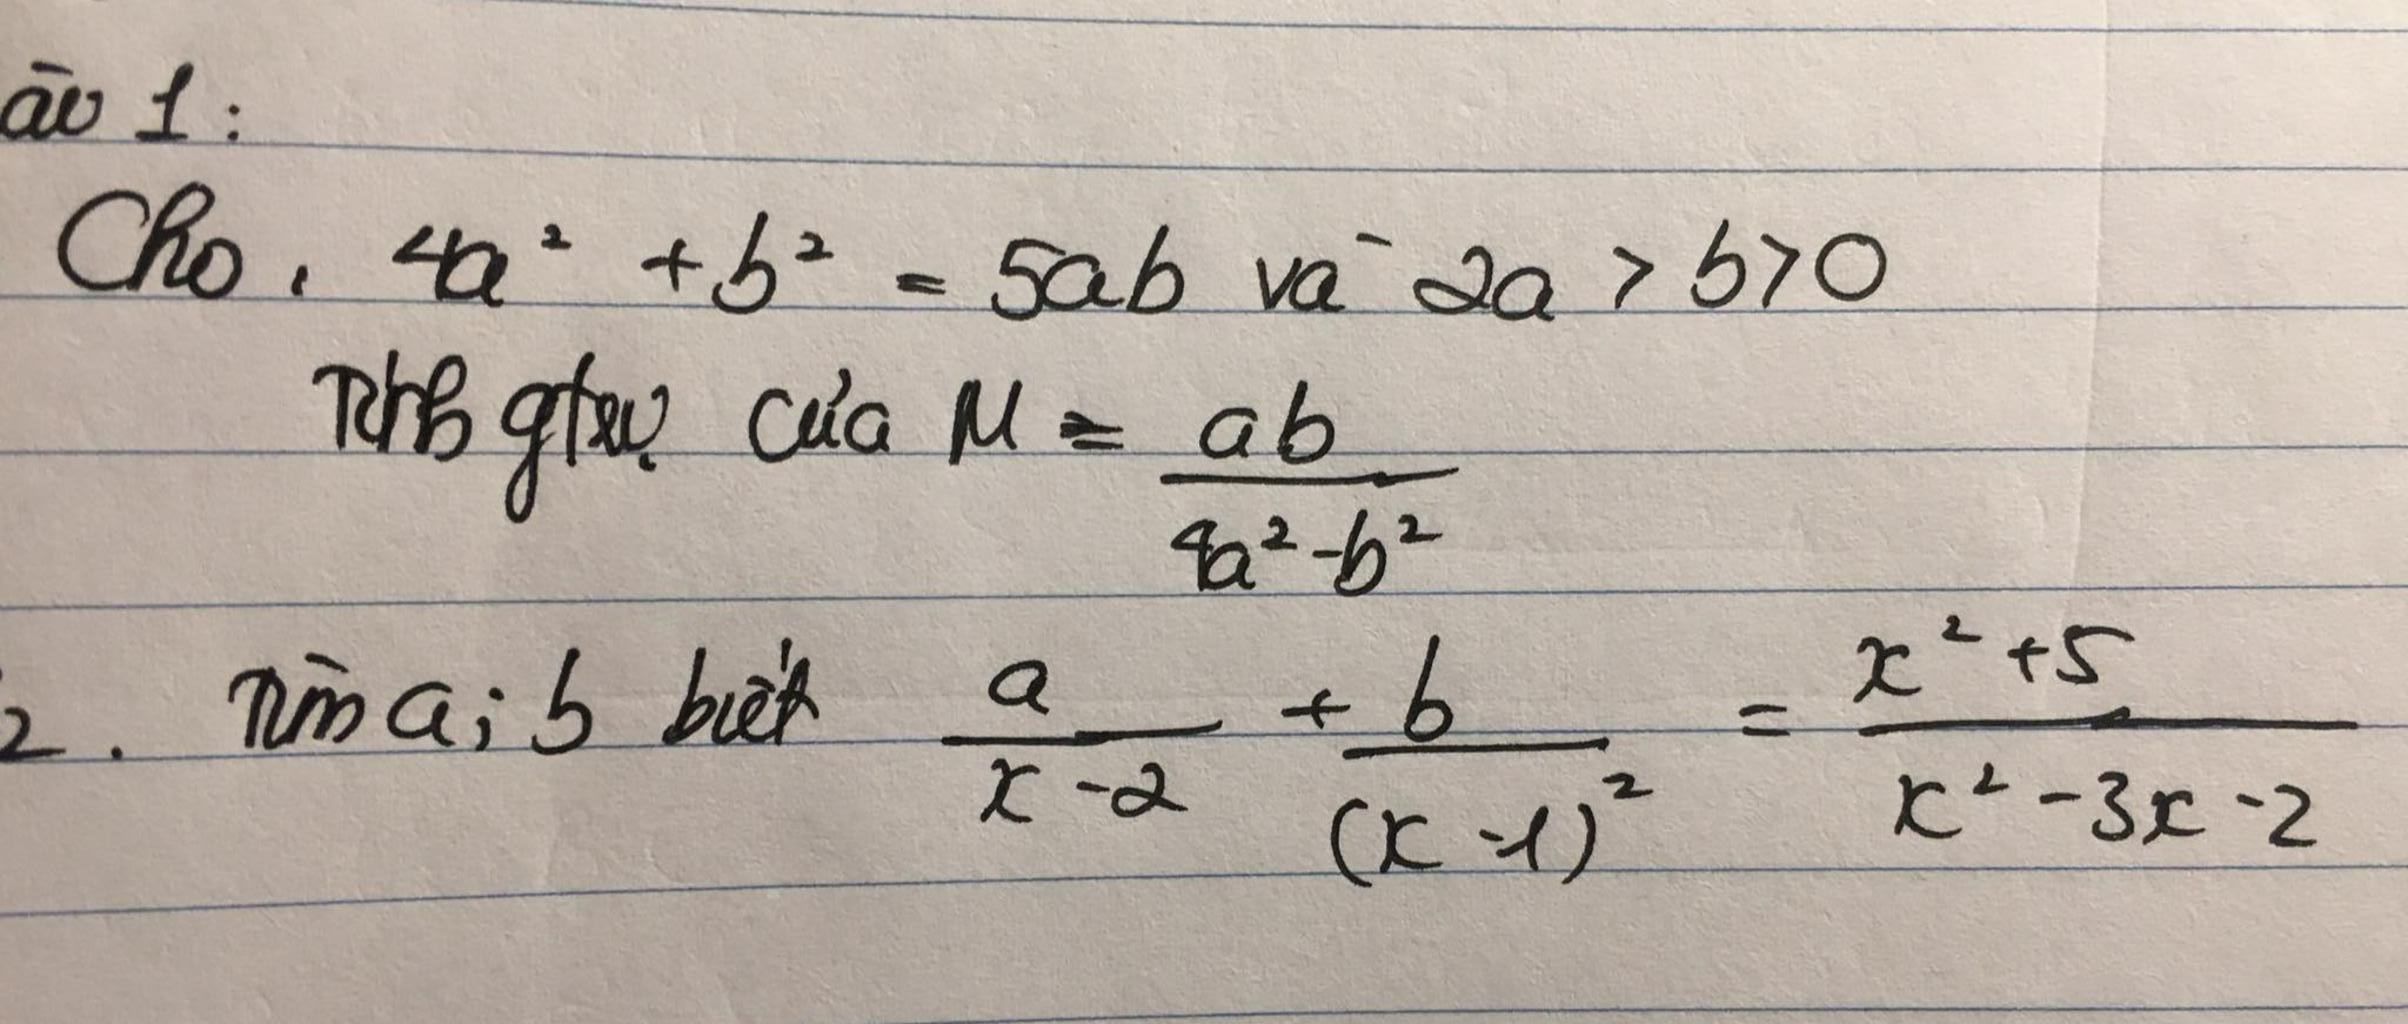 ài 1:
Cho, 4a² + b² = 5ab và 2a > b > 0
Tính gtrị của M = ab / 4a² - b²
2. Tìm a; b biết a / x - 2 + b / (x - 1)² = x² + 5 / x² - 3x - 2